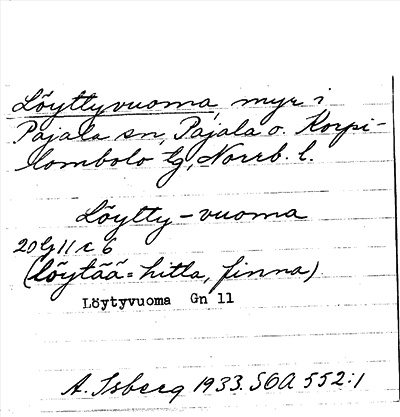 Löyttyvuoma, myr i
Pajala sn, Pajala o. Korpi-
lombolo tg, Norrb. l.
Löytty-vuoma
20g 11 c 6
(löytää = hitta, finna)
Löytyvuoma Gn 11
A. Isberg 1933. SOA 552:1